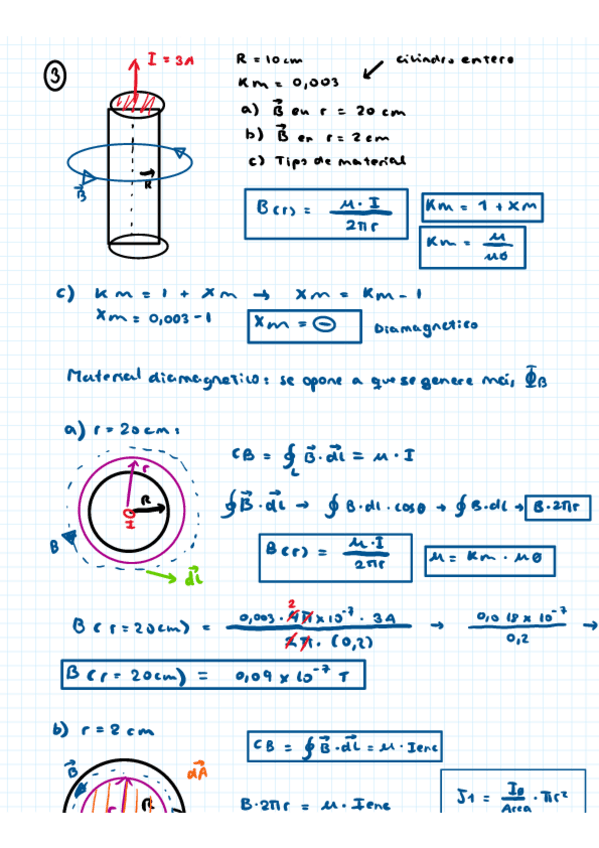 3
I = 3A
R = 10cm
cilindro entero
Km = 0,003
a) B⃗ en r = 20 cm
b) B⃗ en r = 2cm
c) Tipo de material
R
B⃗
B(r) = μ·I / 2πr
Km = 1 + Xm
Km = μ / μ0
c) Km = 1 + Xm → Xm = Km - 1
Xm = 0,003 - 1
Xm = ⊖
Diamagnetico
Material diamagnetico: se opone a que se genere más Φ⃗B
a) r = 20cm:
CB = ∮L B⃗·dl⃗ = μ·I
r
R
I
B
dl⃗
∮B⃗·dl⃗ → ∮B·dl·cosθ → ∮B·dl → B·2πr
B(r) = μ·I / 2πr
μ = Km · μ0
B(r=20cm) = 0,003·4π×10⁻⁷·3A / 2π·(0,2) → 0,018×10⁻⁷ / 0,2 →
2
B(r=20cm) = 0,09×10⁻⁷ T
b) r = 2cm
CB = ∮B⃗·dl⃗ = μ·Ienc
B⃗
dA⃗
r
R
B·2πr = μ·Ienc
J1 = I0 / Area · πr²